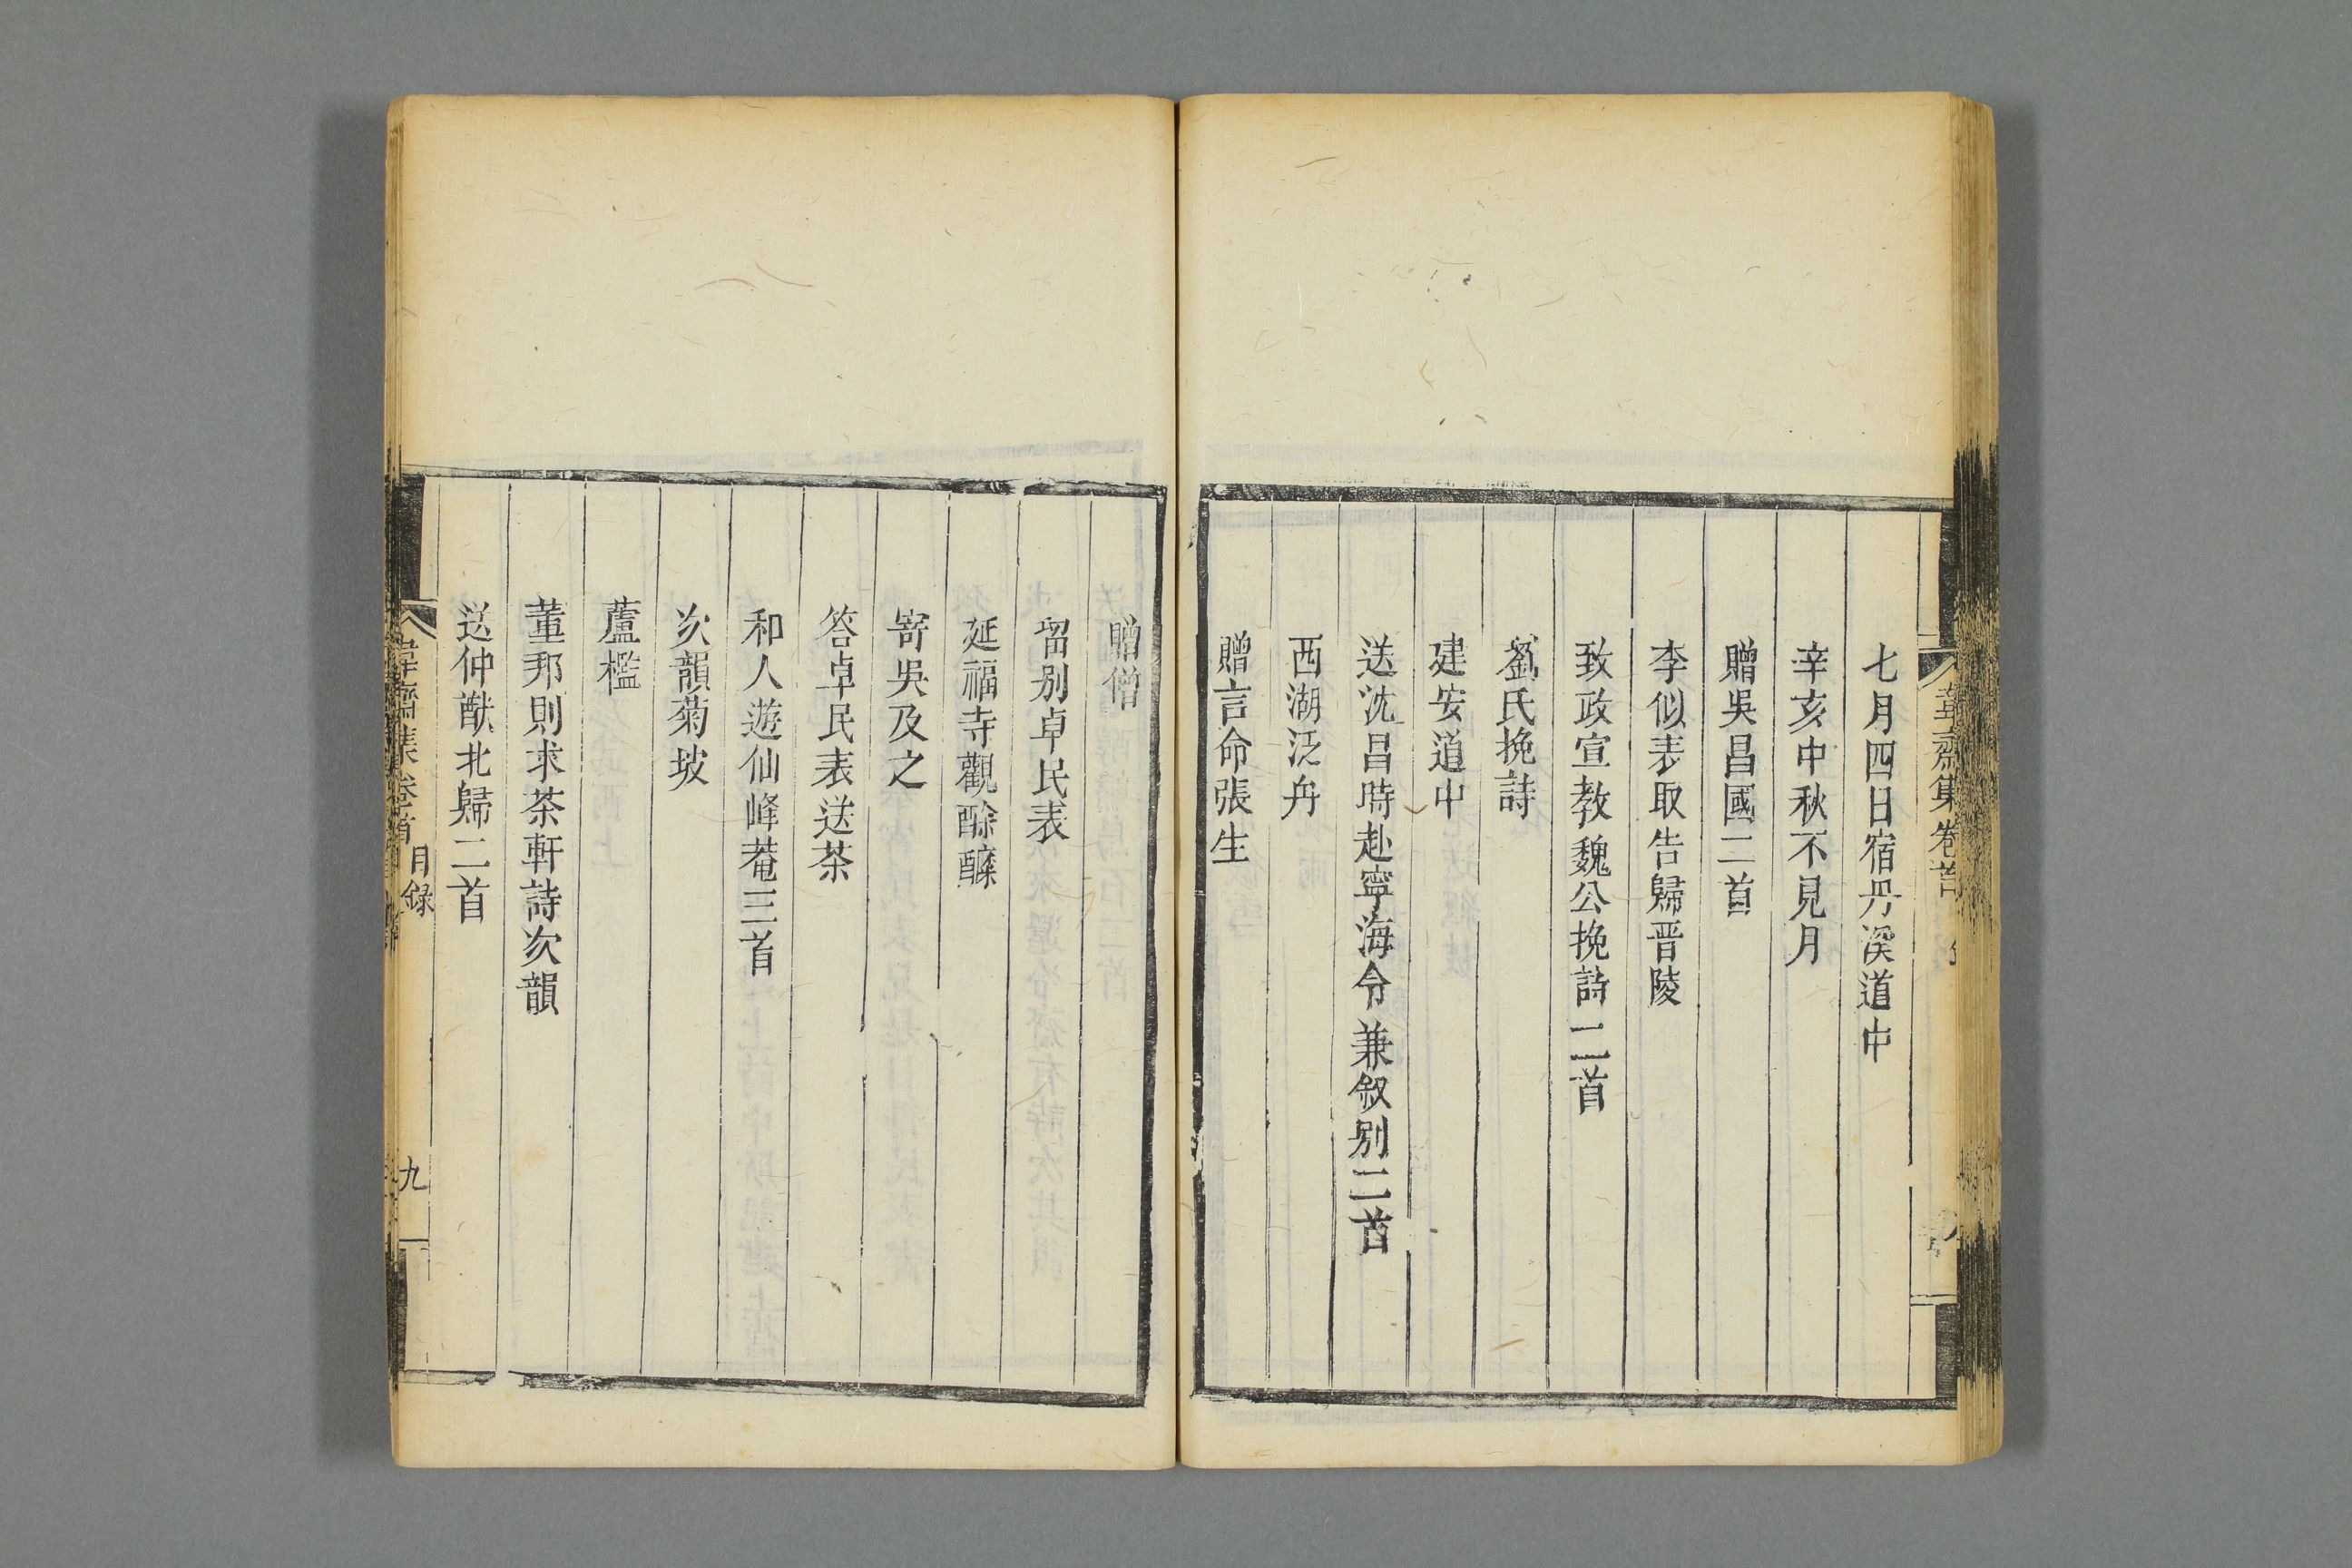 韋齋集卷首
七月四日宿丹溪道中
辛亥中秋不見月
贈吳昌國二首
李似表取告歸晋陵
致政宣教魏公挽詩二首
劉氏挽詩
建安道中
送沈昌時赴寧海令兼叙别二首
西湖泛舟
贈言命張生
贈僧
留别卓民表
延福寺觀酴醾
寄吳及之
答卓民表送茶
和人遊仙峰菴三首
次韻菊坡
蘆檻
董邦則求茶軒詩次韻
送仲猷北歸二首
韋齋集卷首 目錄 九